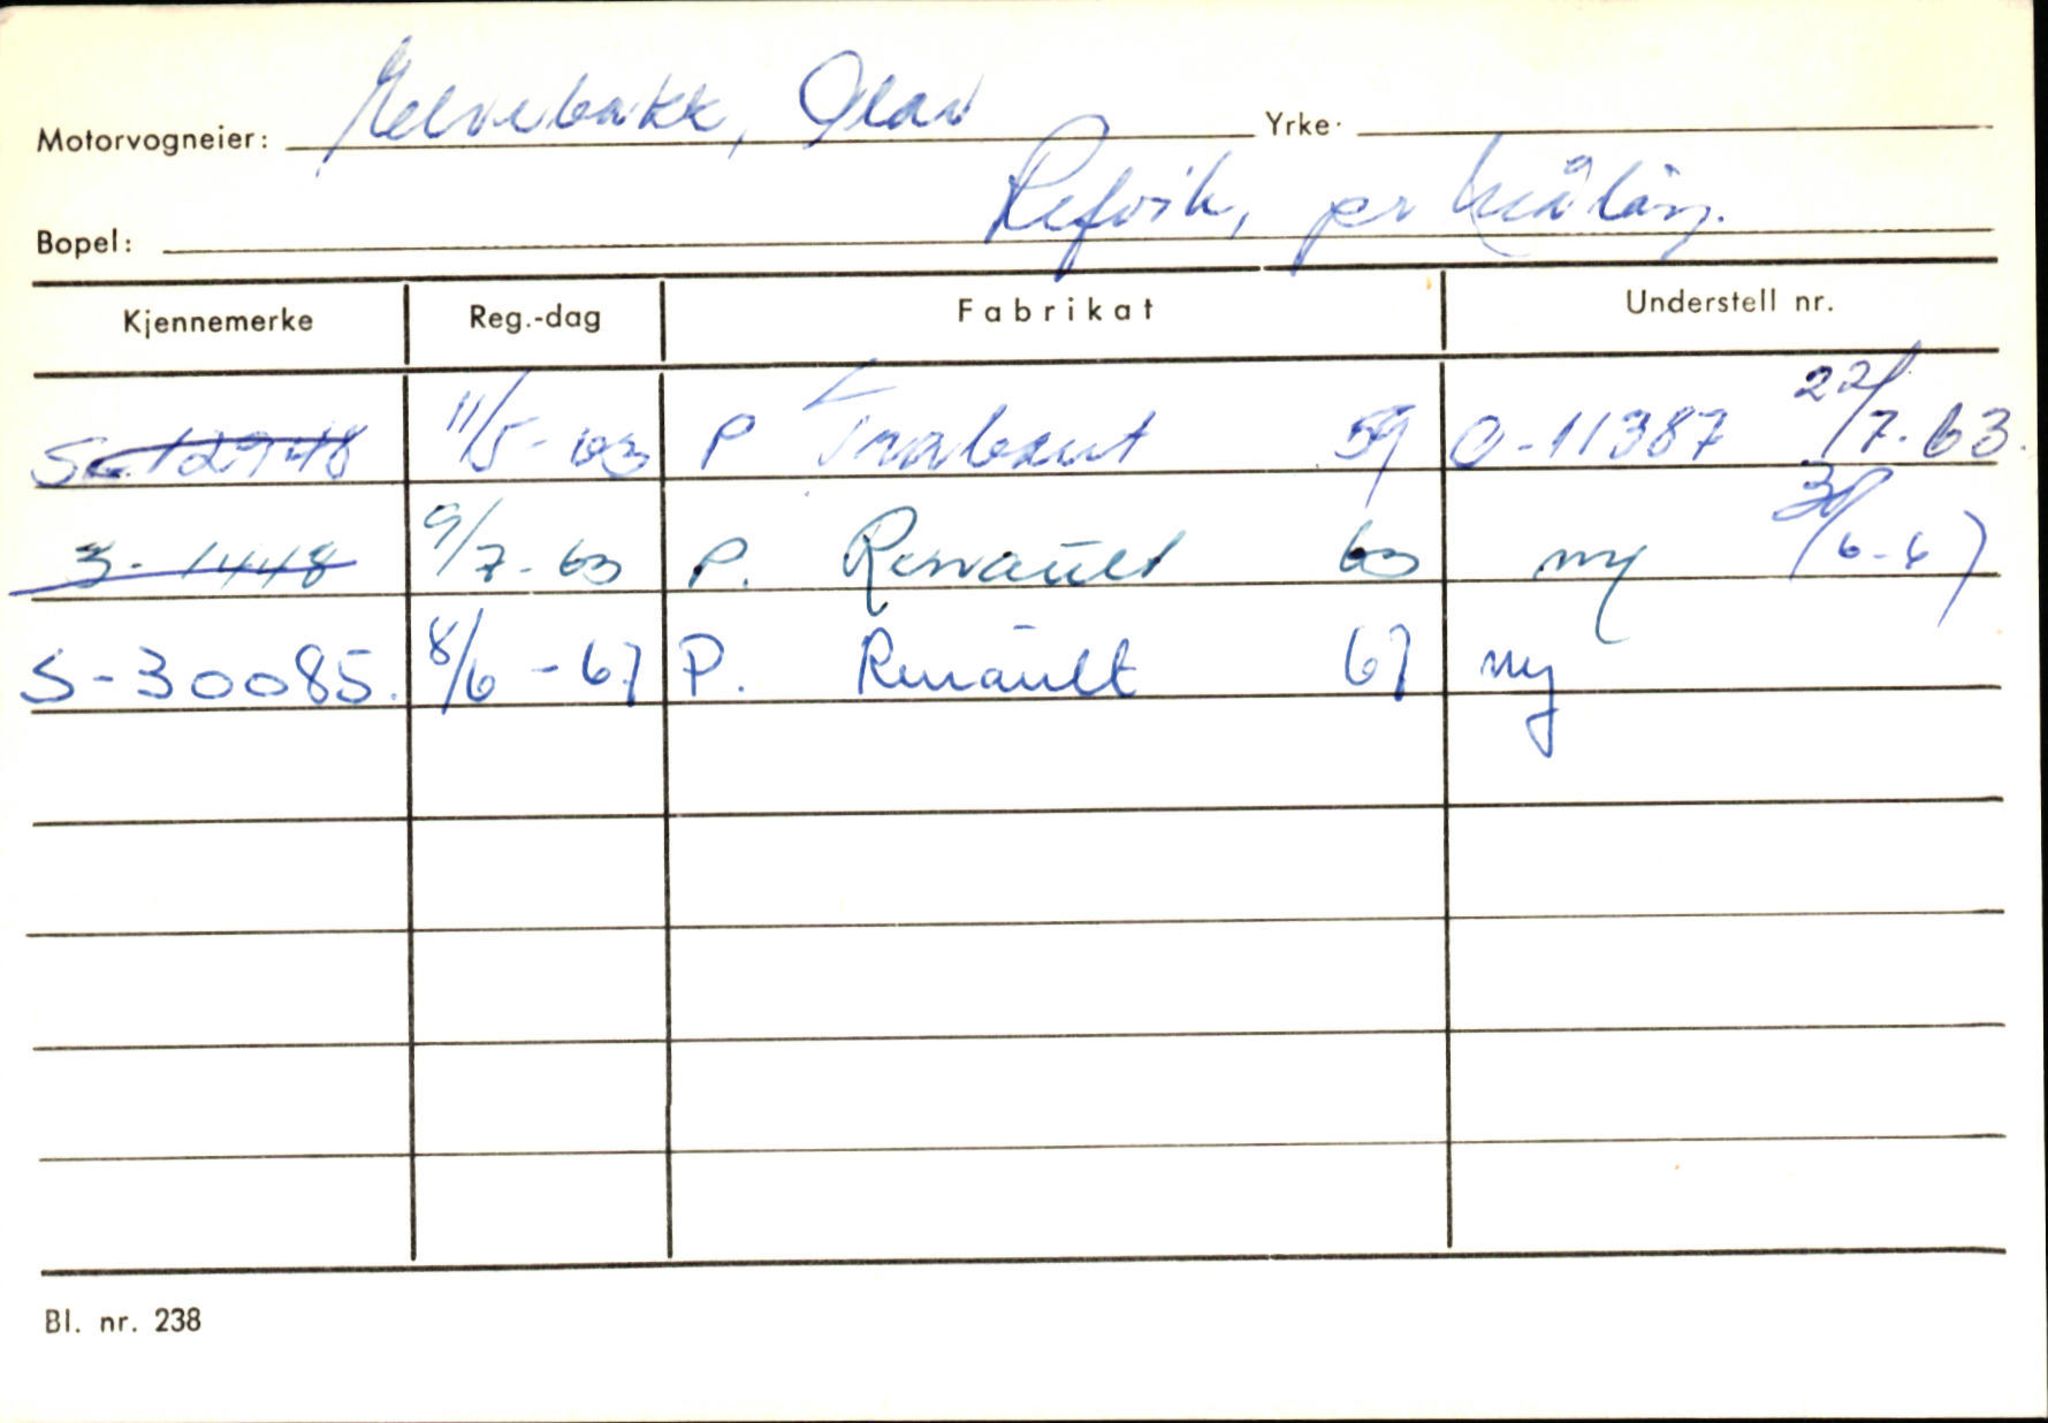 Motorvogneier: Helvebakk, Olav Yrke:
Bopel: Refvik, pr Måløy.
Kjennemerke Reg.-dag Fabrikat Understell nr.
S-12948 11/5-63 P Trabant 59 0-11387 22/7-63.
S-1448 9/7-63 P. Renault 63 ny 30/6-67
S-30085. 8/6-67 P. Renault 67 ny
Bl. nr. 238